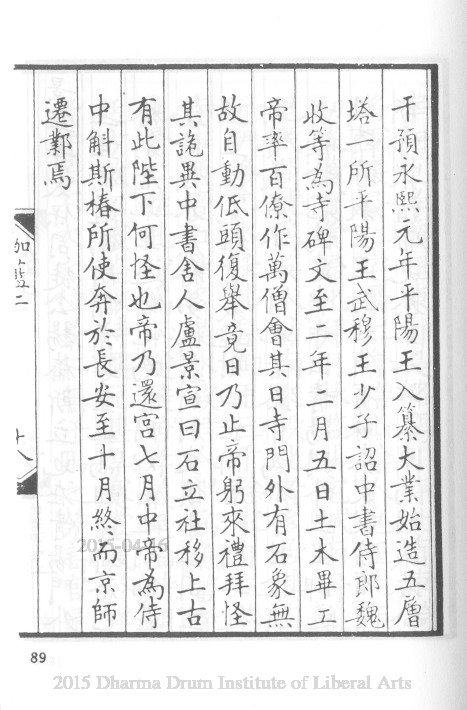 干預永熙元年平陽王入纂大業始造五層
塔一所平陽王武穆王少子詔中書侍郎魏
收等為寺碑文至二年二月五日土木畢工
帝率百僚作萬僧會其日寺門外有石象無
故自動低頭復舉竟日乃止帝躬來禮拜怪
其詭異中書舍人盧景宣曰石立社移上古
有此陛下何怪也帝乃還宮七月中帝為侍
中斛斯椿所使奔於長安至十月終而京師
遷鄴焉
伽藍二
十八
2015-04-16
89
2015 Dharma Drum Institute of Liberal Arts